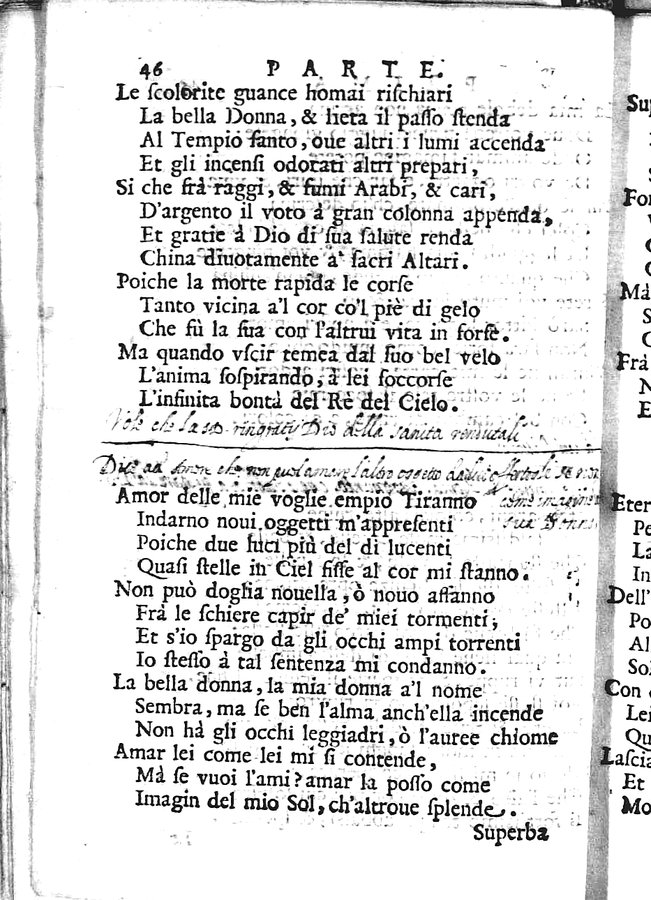 46 PARTE.
Le ſcolorite guance homai riſchiari
La bella Donna, & lieta il paſſo ſtenda
Al Tempio ſanto, oue altri i lumi accenda
Et gli incenſi odorati altri prepari,
Si che frà raggi, & fumi Arabi, & cari,
D'argento il voto à gran colonna appenda,
Et gratie à Dio di ſua ſalute renda
China diuotamente a' ſacri Altari.
Poiche la morte rapida le corſe
Tanto vicina a'l cor co'l piè di gelo
Che fù la ſua con l'altrui vita in forſe.
Ma quando vſcir temea dal ſuo bel velo
L'anima ſoſpirando, à lei ſoccorſe
L'infinita bontà del Rè del Cielo.
Vole che la ringratij Dio della sanità
Dice ad Amore che non può amare altro oggetto se non
come imagine
sua Donna
Amor delle mie voglie empio Tiranno
Indarno noui oggetti m'appreſenti
Poiche due luci più del dì lucenti
Quaſi ſtelle in Ciel fiſſe al cor mi ſtanno.
Non può doglia nouella, ò nouo affanno
Frà le ſchiere capir de' miei tormenti;
Et s'io ſpargo da gli occhi ampi torrenti
Io ſteſſo à tal ſentenza mi condanno.
La bella donna, la mia donna a'l nome
Sembra, ma ſe ben l'alma anch'ella incende
Non hà gli occhi leggiadri, ò l'auree chiome
Amar lei come lei mi ſi contende,
Mà ſe vuoi l'ami? amar la poſſo come
Imagin del mio Sol, ch'altroue ſplende.
Superba
Frà
Eter
Dell'
Po
Al
Sol
Con
Lei
Qu
Laſcia
Et
Mo